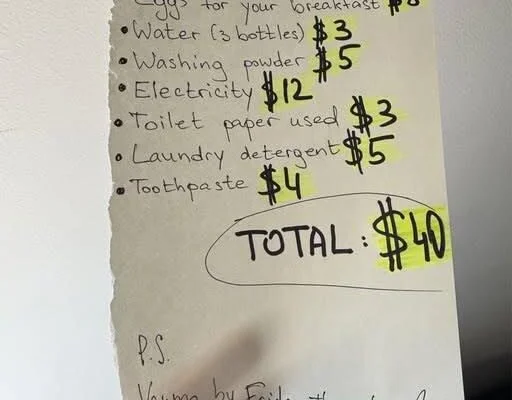 Eggs for your breakfast $8
• Water (3 bottles) $3
• Washing powder $5
• Electricity $12
• Toilet paper used $3
• Laundry detergent $5
• Toothpaste $4
TOTAL: $40
P.S.
by